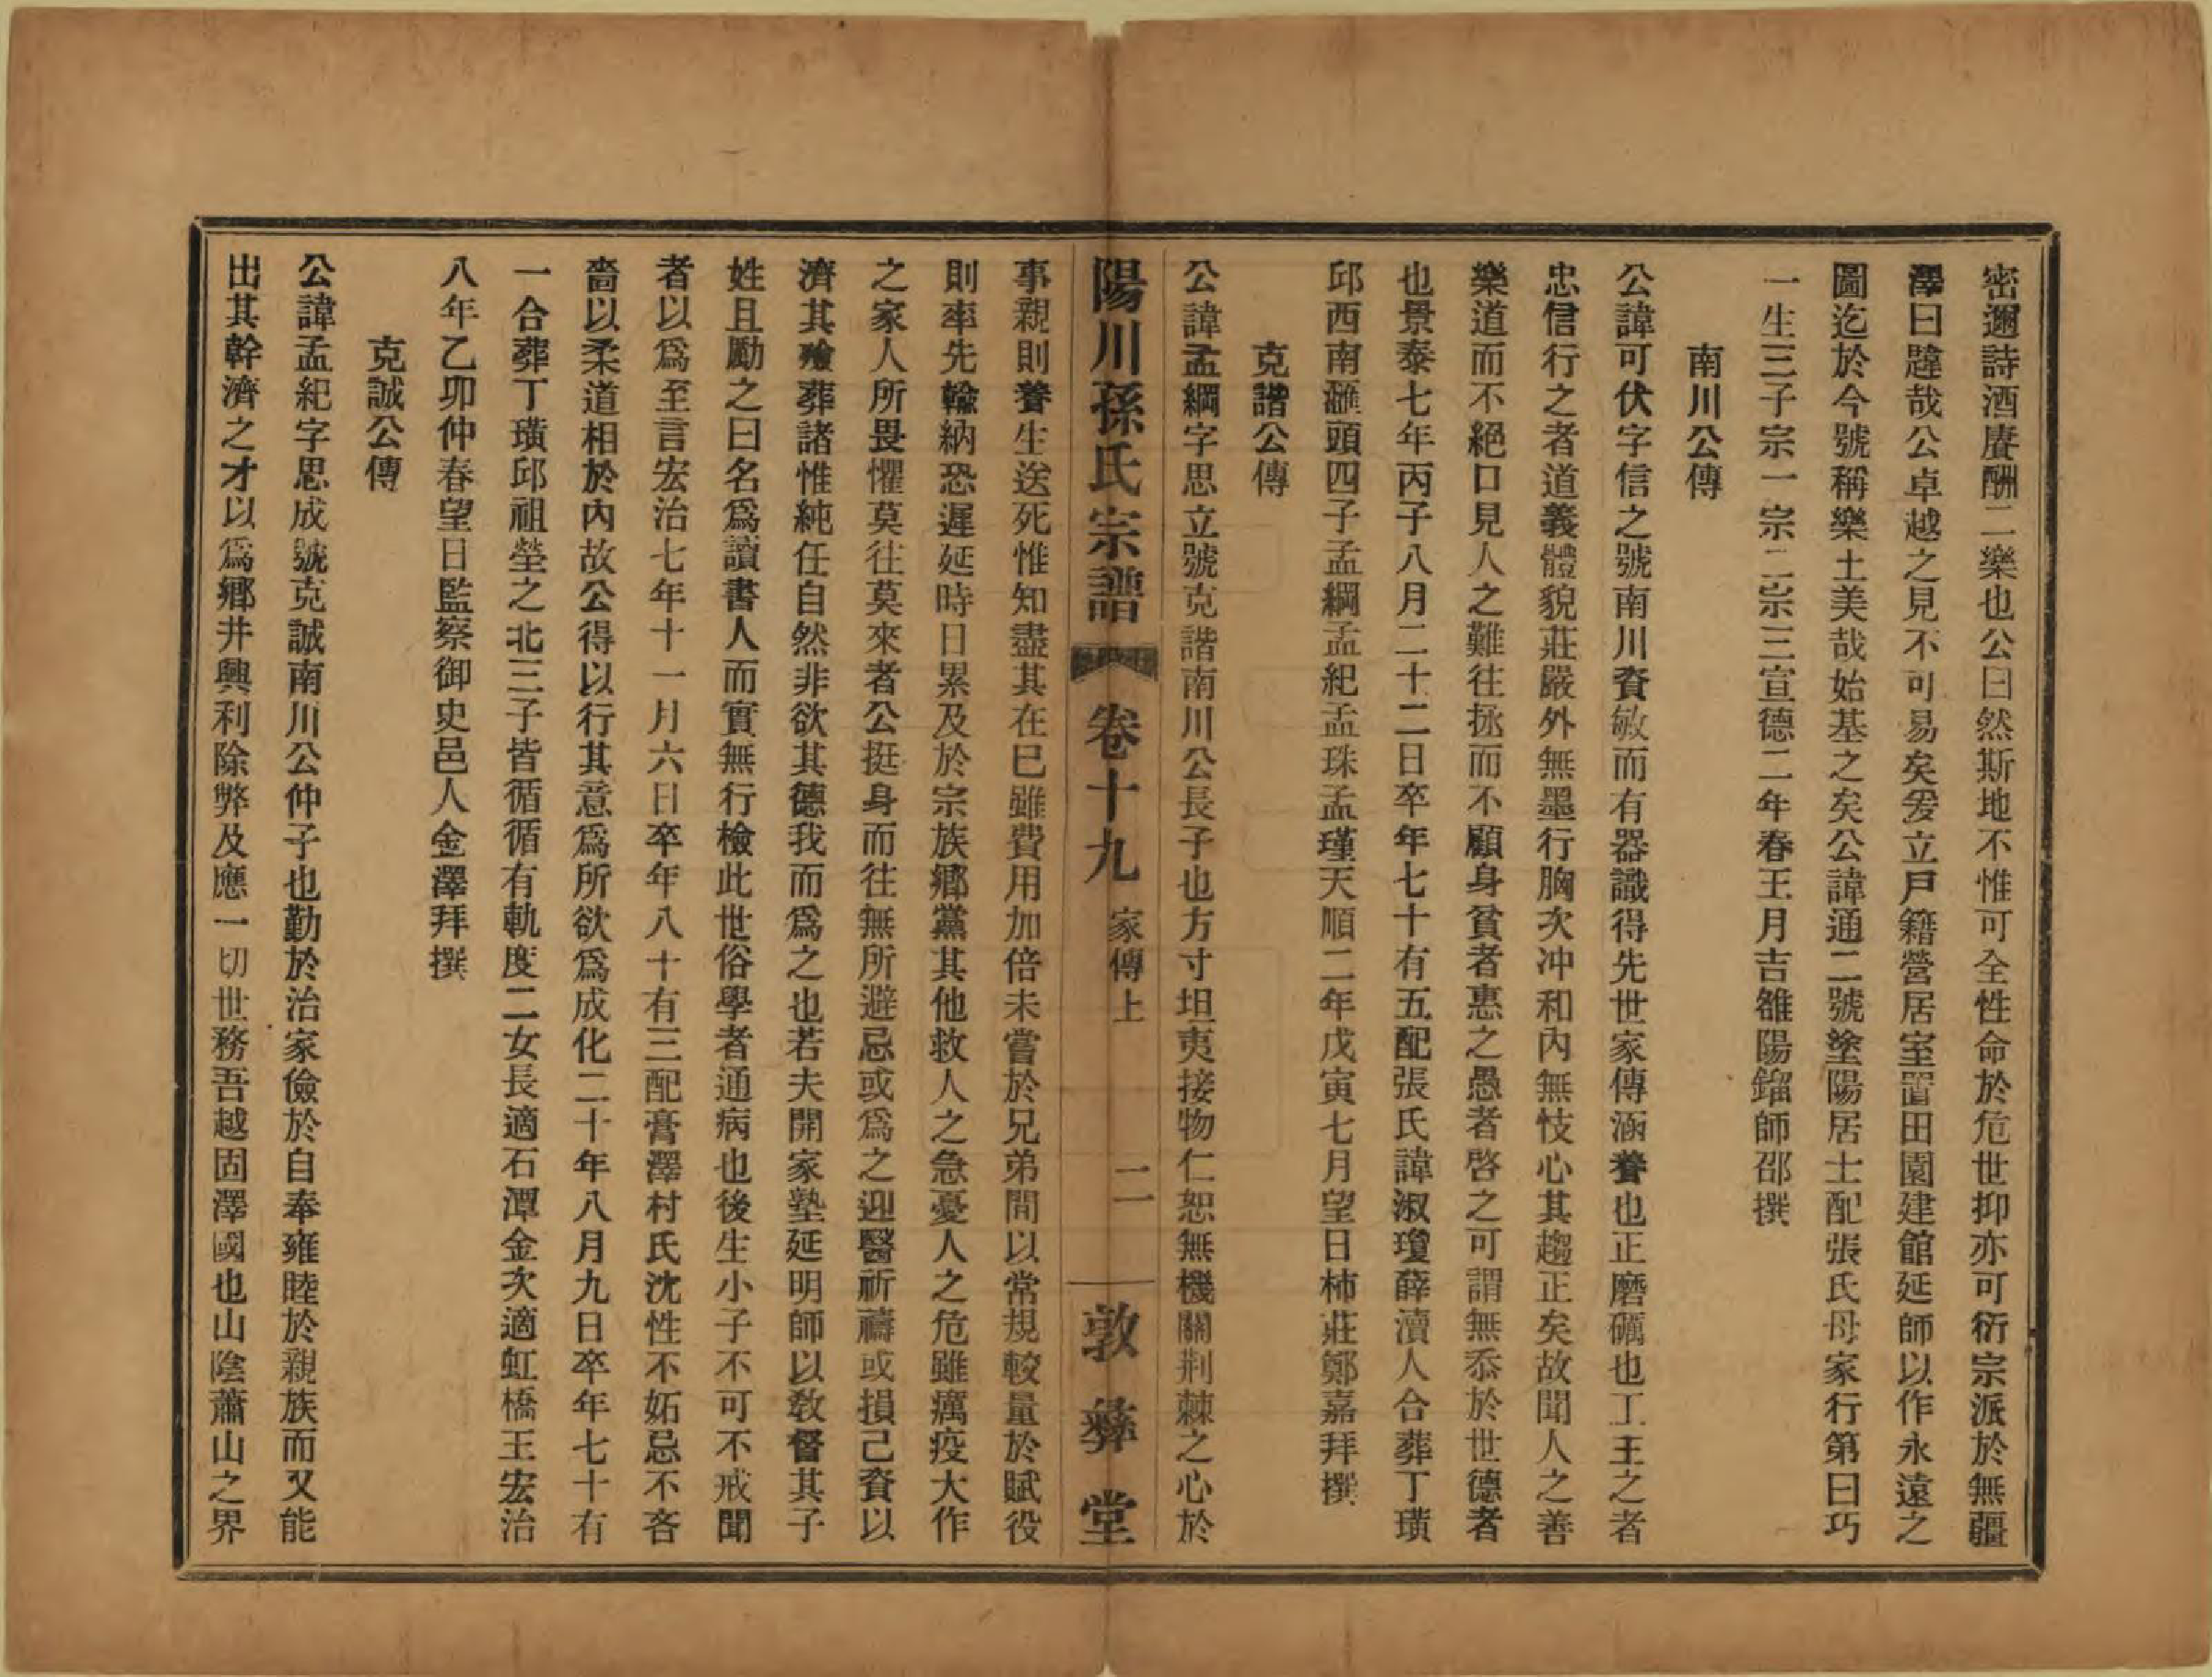 密邇詩酒賡酬二樂也公曰然斯地不惟可全性命於危世抑亦可衍宗派於無疆
澤曰韙哉公卓越之見不可易矣爰立戶籍營居室置田園建館延師以作永遠之
圖迄於今號稱樂土美哉始基之矣公諱通二號塗陽居士配張氏母家行第曰巧
一生三子宗一宗二宗三宣德二年春王月吉雒陽鎦師邵撰
南川公傳
公諱可伏字信之號南川資敏而有器識得先世家傳涵養也正磨礪也工王之者
忠信行之者道義體貌莊嚴外無墨行胸次冲和內無忮心其趨正矣故聞人之善
樂道而不絕口見人之難往拯而不顧身貧者惠之愚者啓之可謂無忝於世德者
也景泰七年丙子八月二十二日卒年七十有五配張氏諱淑瓊薛瀆人合葬丁璜
邱西南灑頭四子孟綱孟紀孟珠孟瑾天順二年戊寅七月望日柿莊鄭嘉拜撰
克諧公傳
公諱孟綱字思立號克諧南川公長子也方寸坦夷接物仁恕無機關荆棘之心於
陽川孫氏宗譜 卷十九 家傳上 二 敦彝堂
事親則養生送死惟知盡其在巳雖費用加倍未嘗於兄弟間以常規較量於賦役
則率先輸納恐遲延時日累及於宗族鄉黨其他救人之急憂人之危雖癘疫大作
之家人所畏懼莫往莫來者公挺身而往無所避忌或爲之迎醫祈禱或損己資以
濟其殮葬諸惟純任自然非欲其德我而爲之也若夫開家塾延明師以敎督其子
姓且勵之曰名爲讀書人而實無行檢此世俗學者通病也後生小子不可不戒聞
者以爲至言宏治七年十一月六日卒年八十有三配膏澤村氏沈性不妬忌不吝
嗇以柔道相於內故公得以行其意爲所欲爲成化二十年八月九日卒年七十有
一合葬丁璜邱祖塋之北三子皆循循有軌度二女長適石潭金次適虹橋王宏治
八年乙卯仲春望日監察御史邑人金澤拜撰
克誠公傳
公諱孟紀字思成號克誠南川公仲子也勤於治家儉於自奉雍睦於親族而又能
出其幹濟之才以爲鄉井興利除弊及應一切世務吾越固澤國也山陰蕭山之界